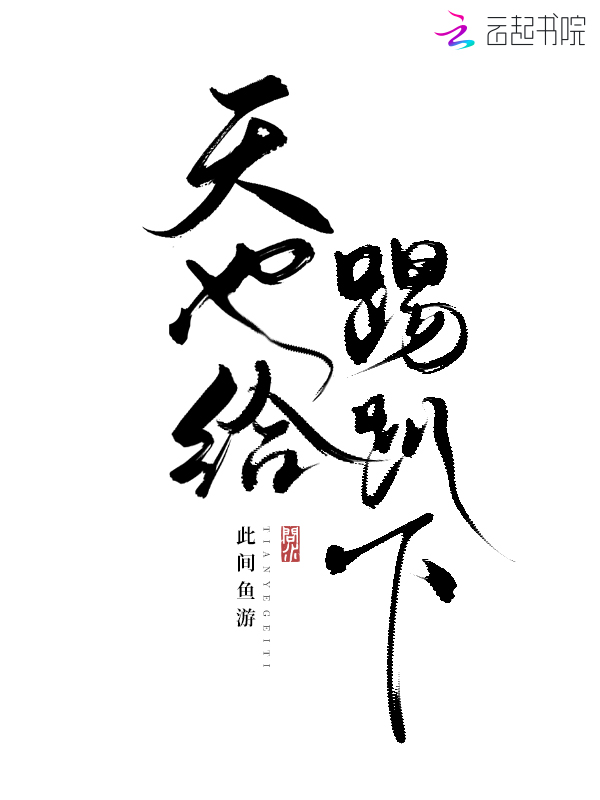 云起书院
天也给
踢趴下
此间鱼游
TIANYEGEITI